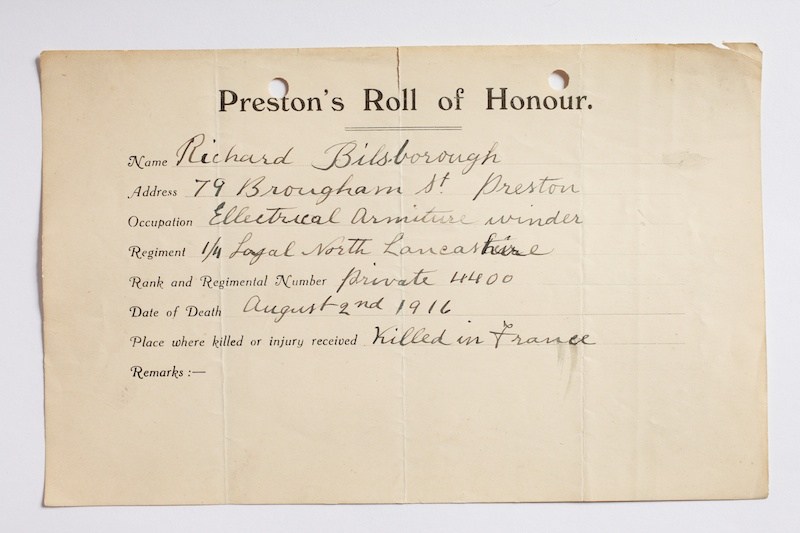 Preston's Roll of Honour.
Name Richard Bilsborough
Address 79 Brougham St. Preston
Occupation Ellectrical Armiture winder
Regiment 1/4 Loyal North Lancashire
Rank and Regimental Number private 4400
Date of Death August 2nd 1916
Place where killed or injury received Killed in France
Remarks :—